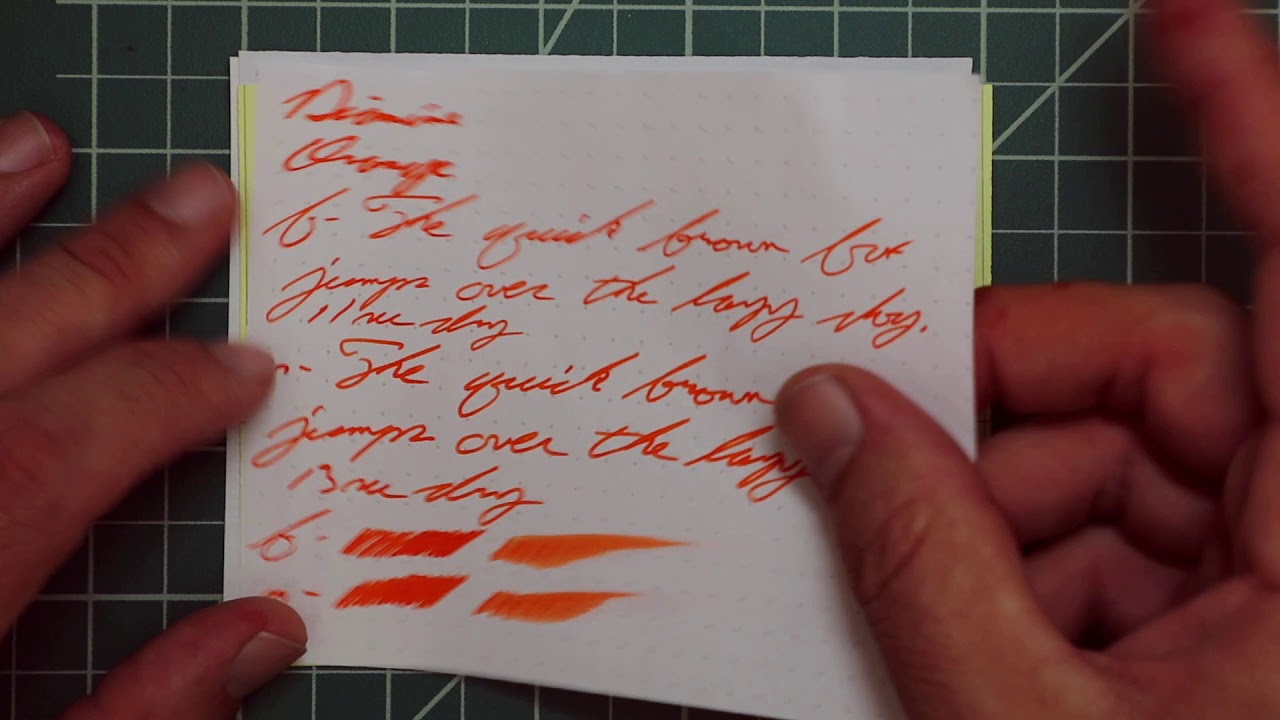 Diamine
Orange
f- The quick brown fox
jumps over the lazy dog.
11 sec dry
The quick brown
jumps over the lazy
13 sec dry
f-